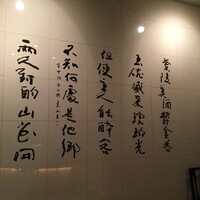 蘭陵美酒鬱金香
玉碗盛來琥珀光
但使主人能醉客
不知何處是他鄉
兩人對酌山花開